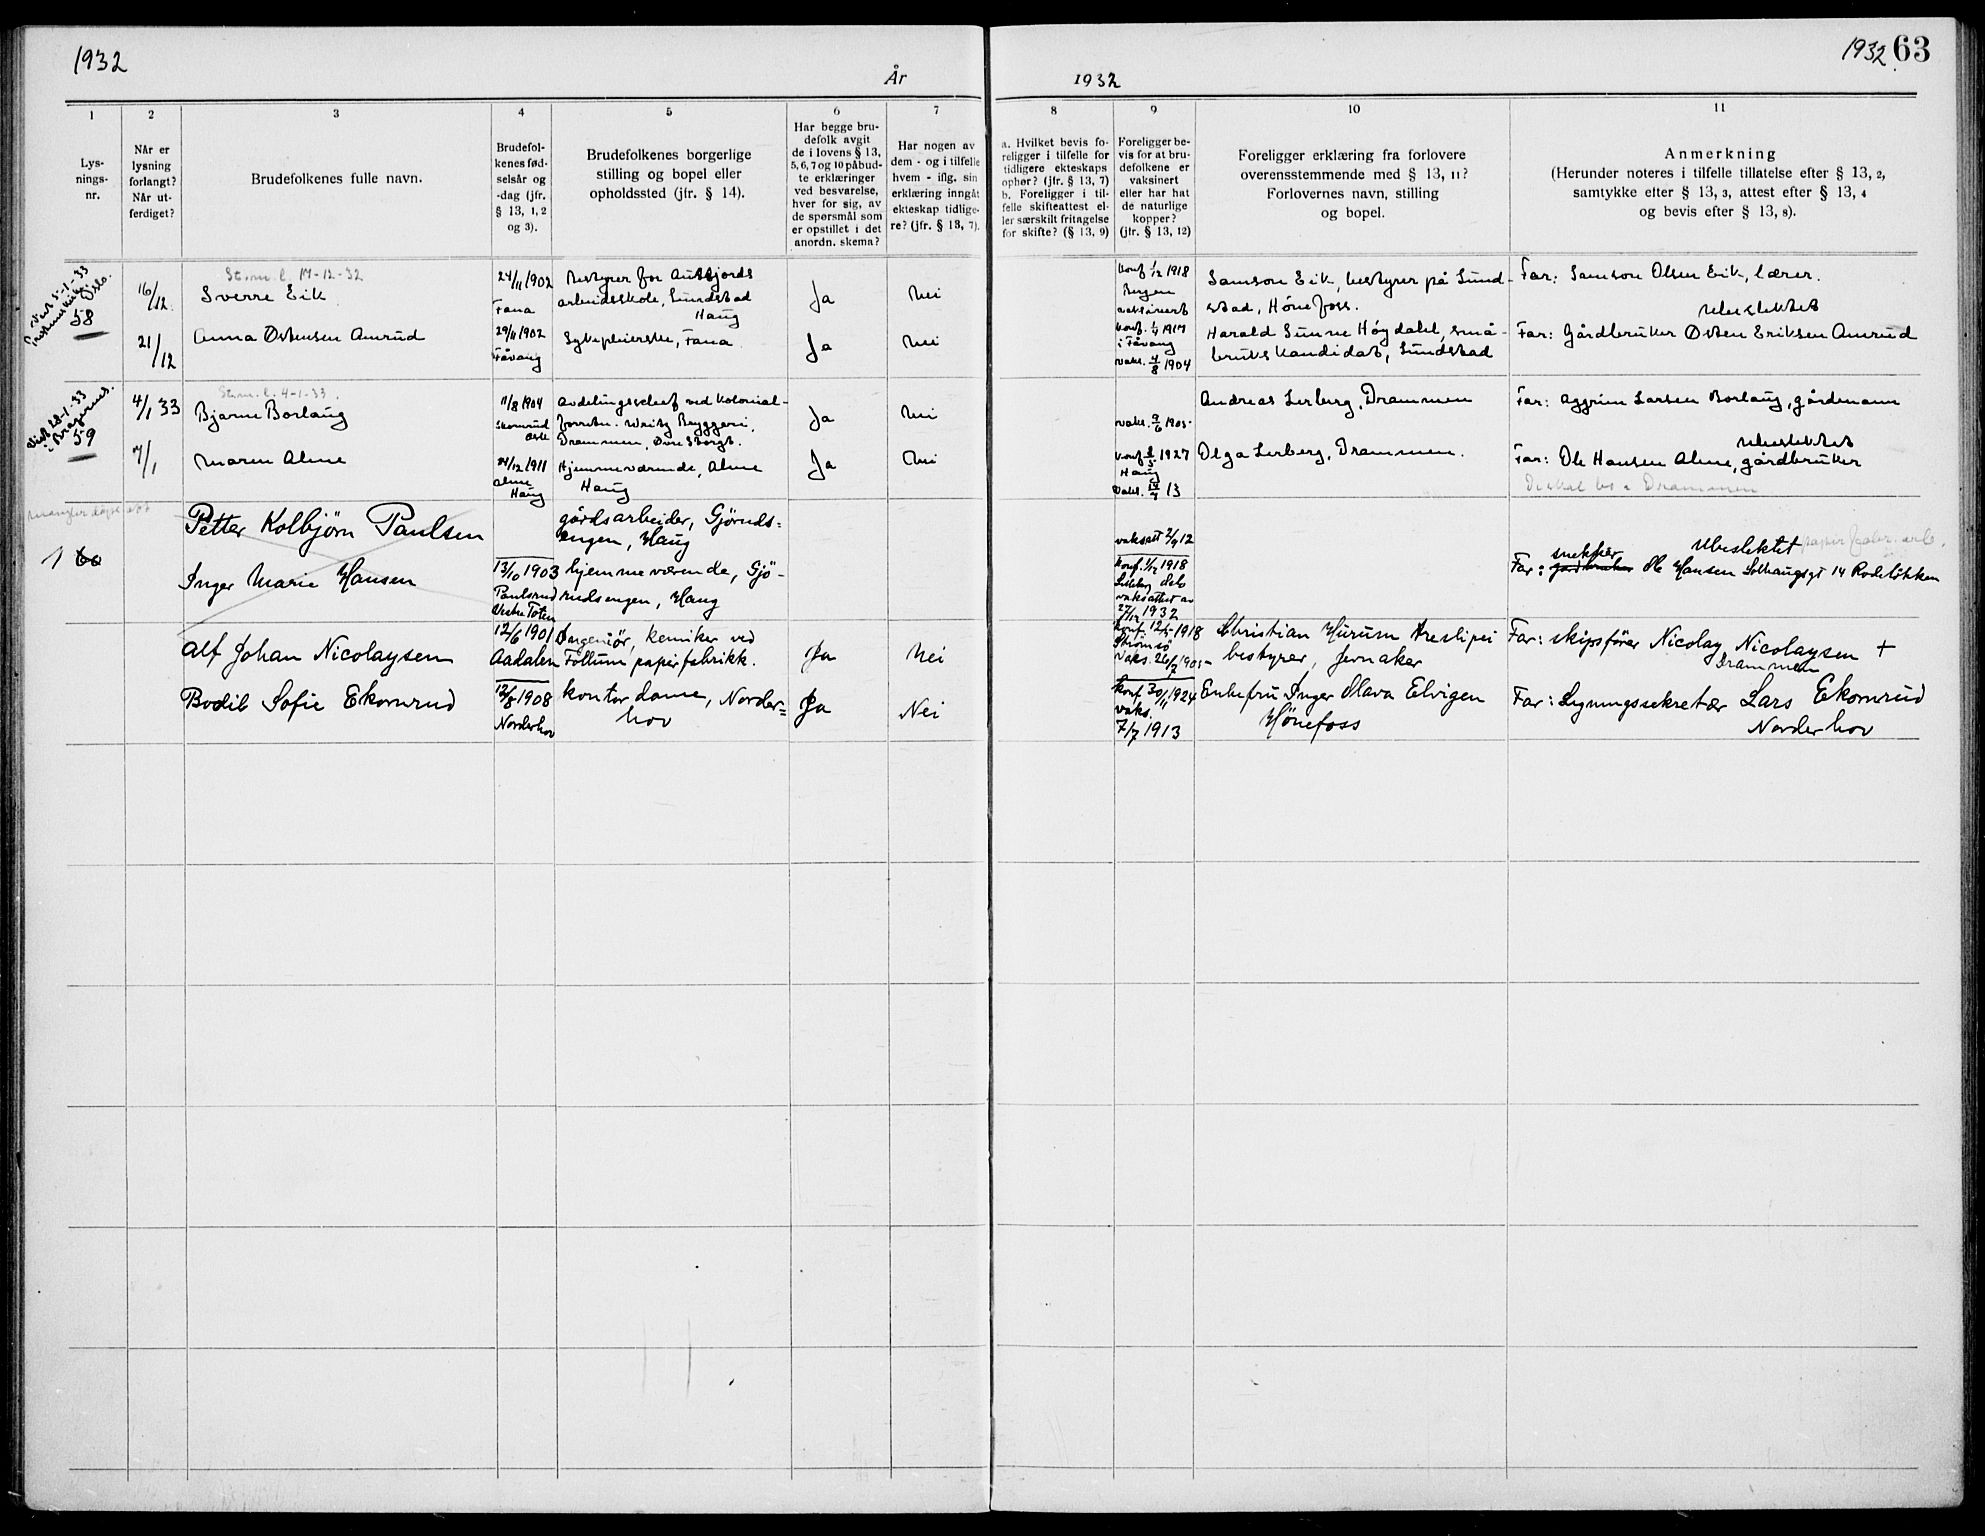 1932
År
1932
1932 63
1
Lys-
nings-
nr.
2
Når er
lysning
forlangt?
Når ut-
ferdiget?
3
Brudefolkenes fulle navn.
4
Brudefol-
kenes fød-
selsår og
-dag (jfr.
§ 13, 1, 2
og 3).
5
Brudefolkenes borgerlige
stilling og bopel eller
opholdssted (jfr. § 14).
6
Har begge bru-
defolk avgit
de i lovens § 13,
5, 6, 7 og 10 påbud-
te erklæringer
ved besvarelse,
hver for sig, av
de spørsmål som
er opstillet i det
anordn. skema?
7
Har nogen av
dem - og i tilfelle
hvem - iflg. sin
erklæring inngåt
ekteskap tidlige-
re? (jfr. § 13, 7).
8
a. Hvilket bevis fo-
religger i tilfelle for
tidligere ekteskaps
ophør? (jfr. § 13, 7)
b. Foreligger i til-
felle skifteattest el-
ler særskilt fritagelse
for skifte? (§ 13, 9)
9
Foreligger be-
vis for at bru-
defolkene er
vaksinert
eller har hat
de naturlige
kopper?
(jfr. § 13, 12)
10
Foreligger erklæring fra forlovere
overensstemmende med § 13, 11?
Forlovernes navn, stilling
og bopel.
11
Anmerkning
(Herunder noteres i tilfelle tillatelse efter § 13, 2,
samtykke efter § 13, 3, attest efter § 13, 4
og bevis efter § 13, 8).
Viet 5-1-33
Oslo.
58
16/12
17-12-32
Sverre Eik
24/11 1902
Fana
Bestyrer for
arbeidsskole, Sundstad
Haug
Ja
Nei
konf. 1/12 1918
Bergen
vaksinert
Samson Eik, bestyrer på Sund-
stad, Hönefoss.
Far: Samson Olsen Eik, lærer.
Ubeslektet
21/12
Anna Østensen Amrud
29/11 1902
Fåvang
Sykepleierske, Fana
Ja
Nei
i Fåvang
vaks. 4/8 1904
Harald Sunne Høgdahl, små-
brukskandidat, Sundstad
Far: Gårdbruker Østen Eriksen Amrud
Viet 28-1-33
i Bragernes.
59
4/1 33
4-1-33.
Bjarne Borlaug
11/8 1904
Avdelingschef ved Kolonial-
Bryggeri,
Drammen,
Ja
Nei
vaks. 9/6 1905
Andreas Lerberg, Drammen
Far: Aggrim Larsen Borlaug, gårdmann
Ubeslektet
7/1
Maren Alme
24/12 1911
Alme
Haug
Hjemmeværende, Alme
Haug
Ja
Nei
1927
Haug
13
Olga Lerberg, Drammen.
Far: Ole Hansen Alme, gårdbruker
De skal bo i Drammen
mangler dåpsattest
1 60
Petter Kolbjørn Paulsen
gårdsarbeider, Gjöruds-
engen, Haug
vaksatt 2/9 12
Ubeslektet
Inger Marie Hansen
13/10 1903
Paulsrud
Vestre Toten
hjemmeværende, Gjö-
rudsengen, Haug
konf. 1918
vaksattest av
27/12 1932
snekker
Far: gårdbruker Ole Hansen Solhaugsgt 14 Rodelökken
Alf Johan Nicolaysen
12/6 1901
Aadalen
Ingeniör, kemiker ved
Follum papirfabrikk.
Ja
Nei
1918
Strömsö
Christian Hurum Treslipei
bestyrer, Jevnaker
Far: skipsförer Nicolay Nicolaysen +
Drammen
Bodil Sofie Ekornrud
12/8 1908
Norderhov
kontordame, Norder=
hov
Ja
Nei
konf. 30/11 1924
vaks.
7/7 1913
Enkefru Inger Mava Elvigen
Hönefoss
Far: Ligningssekretær Lars Ekornrud
Norderhov